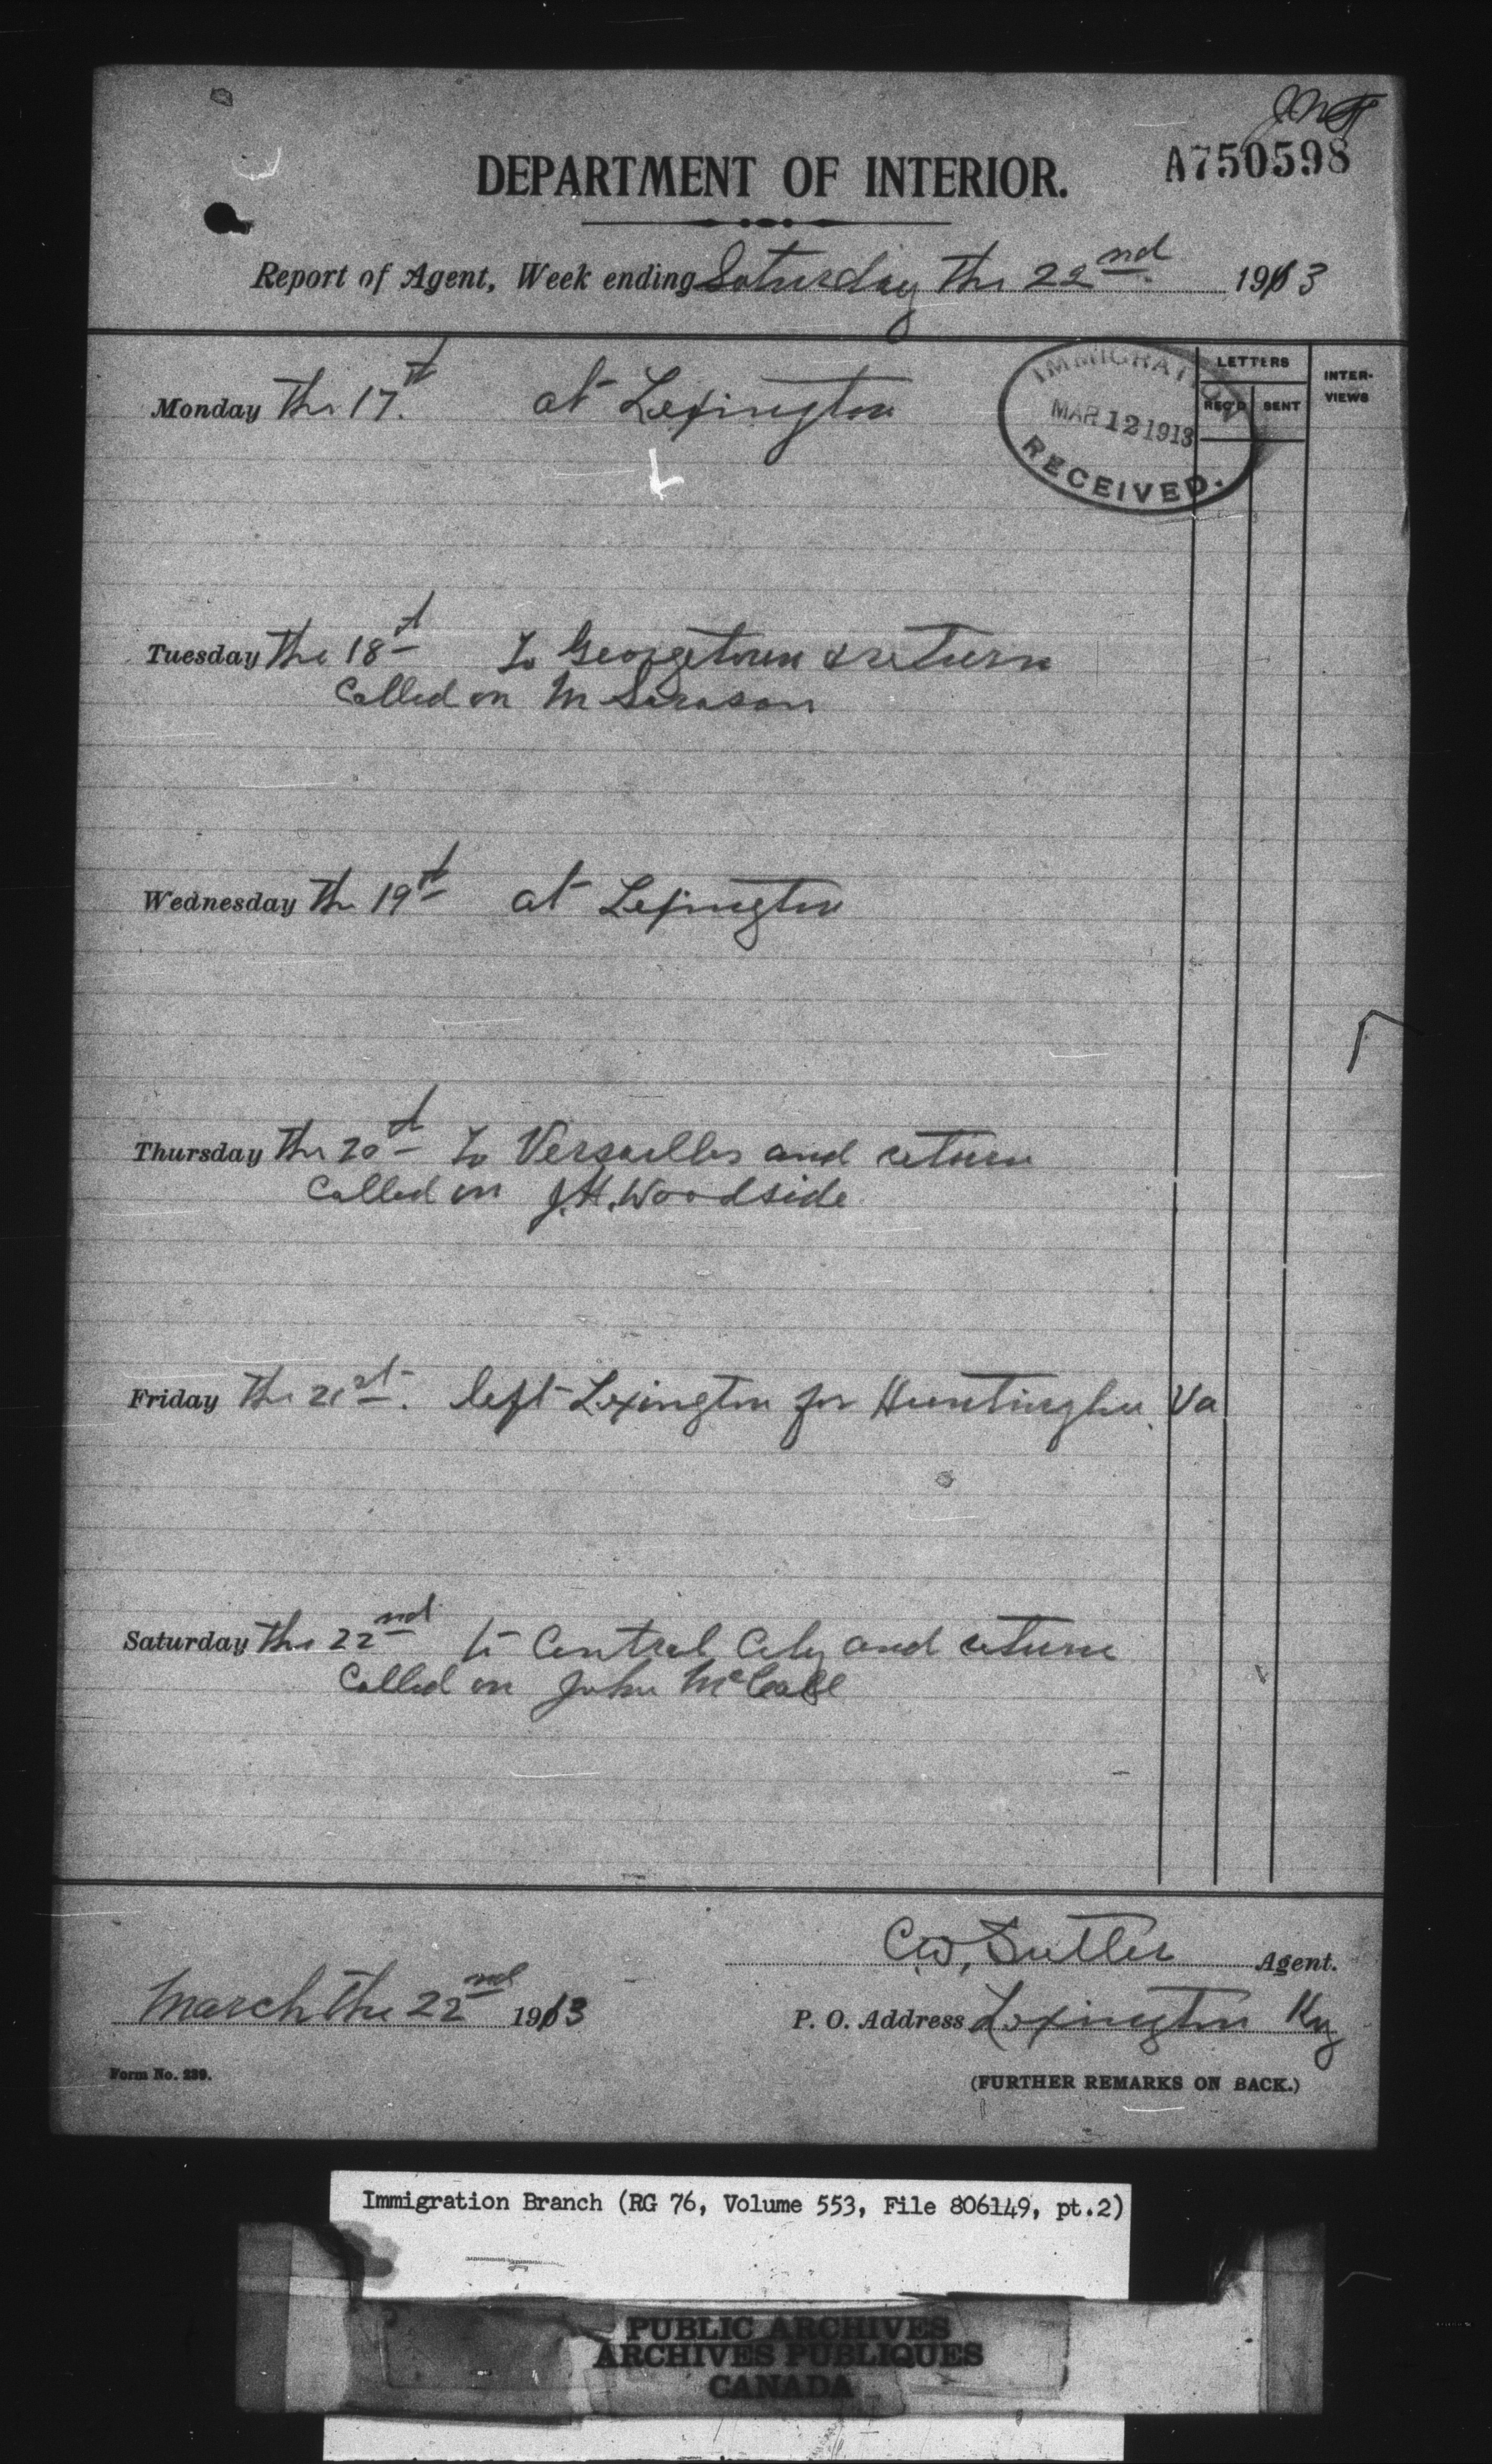 A750598
DEPARTMENT OF INTERIOR.
Report of Agent, Week ending Saturday the 22nd 1913
LETTERS
REC'D SENT
INTER-
VIEWS
IMMIGRATION
MAR 12 1913
RECEIVED.
Monday the 17th at Lexington
Tuesday the 18th To Georgetown & return
Called on M Sarason
Wednesday the 19th at Lexington
Thursday the 20th To Versailles and return
Called on J.H. Woodside
Friday the 21st. left Lexington for Huntington Va
Saturday the 22nd to Central City and return
Called on John McCabe
C.W. Sutler Agent.
March the 22nd 1913
P. O. Address Lexington Ky
Form No. 239.
(FURTHER REMARKS ON BACK.)
Immigration Branch (RG 76, Volume 553, File 806149, pt.2)
PUBLIC ARCHIVES
ARCHIVES PUBLIQUES
CANADA